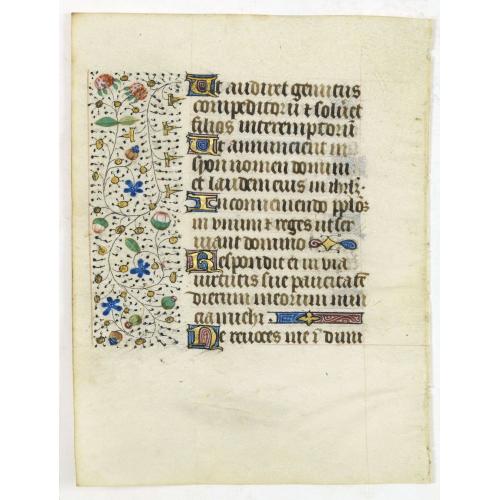 Ut audiret gemitus
compeditorū ⁊ solvet
filios interemptorū
Ut annuncient in s
yon nomen domini
et laudem eius in ihrlm
In conveniendo pplos
in unum ⁊ reges ut ser
viant domino
Respondit ei in via
virtutis sue paucitatē
dierum meorum nun
cia michi
Ne revoces me ī dimi